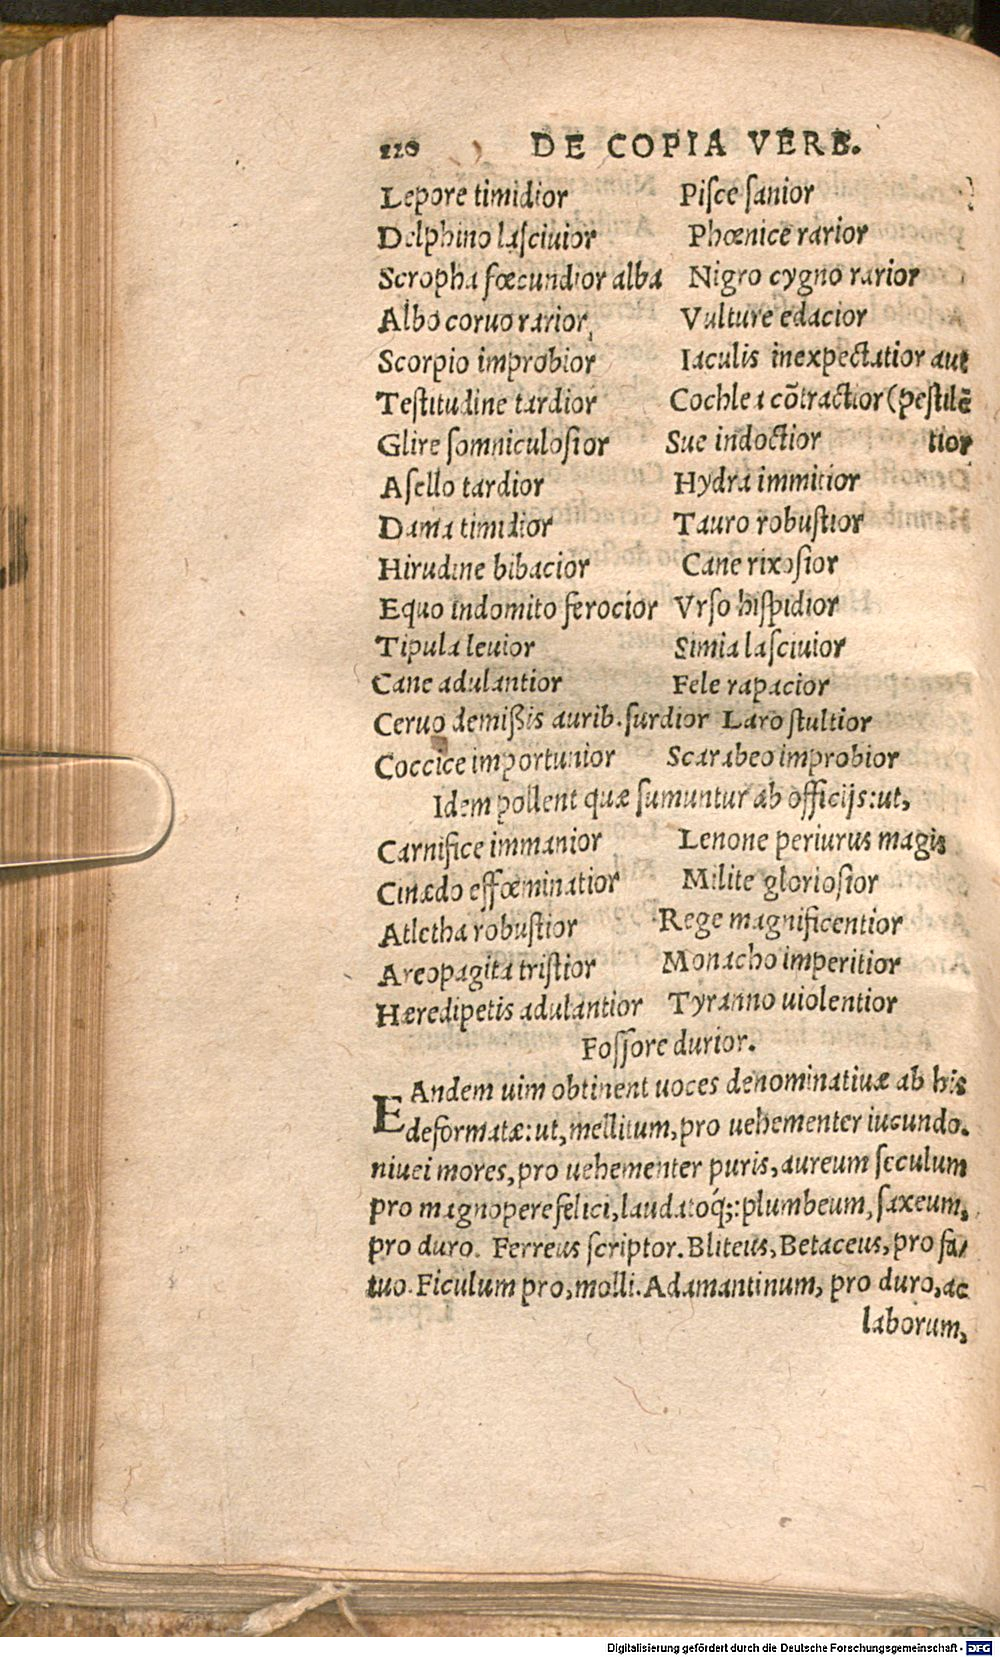 120 DE COPIA VERB.
Lepore timidior Piſce ſanior
Delphino laſciuior Phœnice rarior
Scropha fœcundior alba Nigro cygno rarior
Albo coruo rarior, Vulture edacior
Scorpio improbior Iaculis inexpectatior aut
Teſtitudine tardior Cochlea cõtractior (peſtilẽ
Glire ſomniculoſior Sue indoctior tior
Aſello tardior Hydra immitior
Dama timidior Tauro robuſtior
Hirudine bibacior Cane rixoſior
Equo indomito ferocior Vrſo hiſpidior
Tipula leuior Simia laſciuior
Cane adulantior Fele rapacior
Ceruo demißis aurib. ſurdior Laro ſtultior
Coccice importunior Scarabeo improbior
Idem pollent quæ ſumuntur ab officijs: ut,
Carnifice immanior Lenone periurus magis
Cinædo effœminatior Milite glorioſior
Atletha robuſtior Rege magnificentior
Areopagita triſtior Monacho imperitior
Hæredipetis adulantior Tyranno uiolentior
Foſſore durior.
EAndem uim obtinent uoces denominatiuæ ab his
deformatæ: ut, mellitum, pro uehementer iucundo.
niuei mores, pro uehementer puris, aureum ſeculum
pro magnopere felici, laudatoq́;: plumbeum, ſaxeum,
pro duro. Ferreus ſcriptor. Bliteus, Betaceus, pro fa/
tuo. Ficulum pro, molli. Adamantinum, pro duro, ac
laborum,
Digitalisierung gefördert durch die Deutsche Forschungsgemeinschaft - DFG